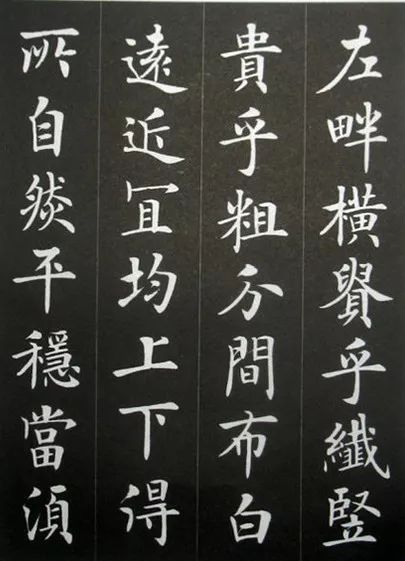 左畔橫貴乎纖竪
貴乎粗分間布白
遠近冝均上下得
所自然平穩當湏